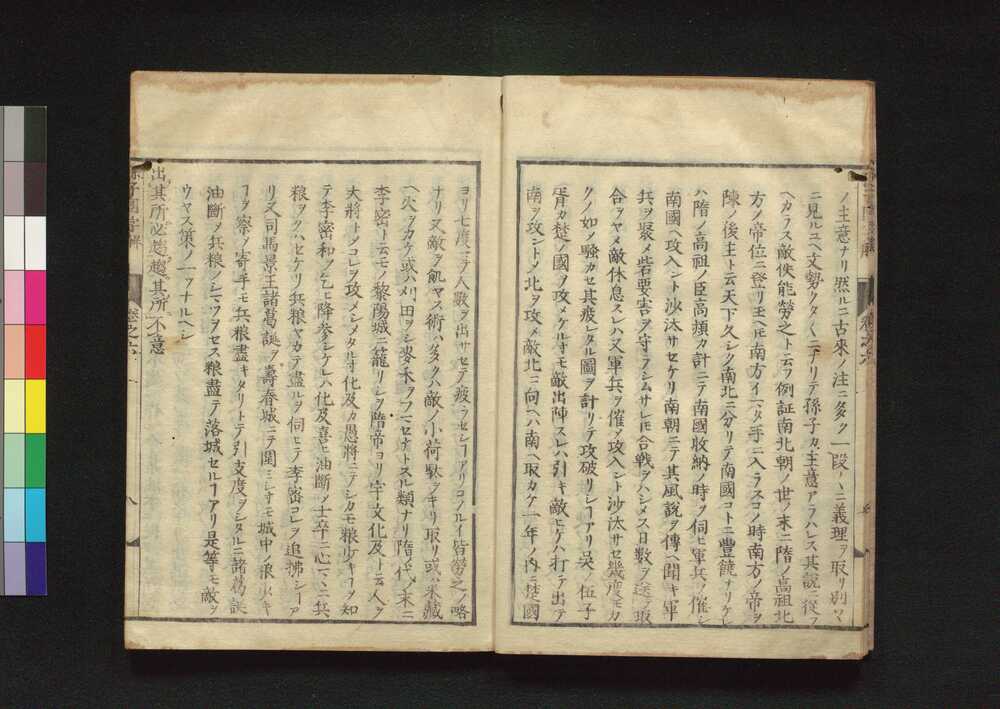 ノ主意ナリ然ルニ古來ノ注ニ多ク一段〱ニ義理ヲ取リ別ツマ
ニ見ルユヘ文勢クタ〱ニナリテ孫子カ主意アラハレス其說ニ從フ
ヘカラス敵佚能勞之ト云フ例証南北朝ノ世ノ末ニ隋ノ高祖北
方ノ帝位ニ登リ玉ヘ𪜈南方イマタ手ニ入ラスコノ時南方ノ帝ヲ
陳ノ後主ト云天下久シク南北ニ分リテ南國コトニ豐饒ナリケレ
ハ隋ノ高祖ノ臣高熲カ計ニテ南國收納ノ時ヲ伺ヒ軍兵ヲ催シ
南國ヘ攻入ント沙汰サセケリ南朝ニテ其風說ヲ傳ヘ聞キ軍
兵ヲ聚メ砦要害ヲ守ラシムサレ𪜈合戰ヲハシメス日數ヲ送ラ取
合ヲヤメ敵休息スレハ又軍兵ヲ催メ攻入ント沙汰サセ幾度モカ
クノ如ノ騷カセ其疲レタル圖ヲ計リテ攻破リシヿアリ吳ノ伍子
胥カ楚ノ國ヲ攻メケル𪜈モ敵出陳スレハ引キ敵ヒケハ打テ出テ
南ヲ攻ントメ北ヲ攻メ敵北ニ向ヘハ南ヘ取カケ一年ノ內ニ楚國
ヨリ七度マテ人數ヲ出サセテ疲ラセシヿアリコノルイ皆勞之ノ略
ナリ又敵ヲ飢ヤス術ハ多クハ敵ノ小荷駄ヲキリ取リ或ハ米藏
ヘ火ヲカケ或ハ刈田ヲシ麥禾ヲフマセナトスル類ナリ隋ノ代ノ末ニ
李密ト云モノ黎陽城ニ籠リシヲ隋帝ヨリ宇文化及ト云人ヲ
大將トメコレヲ攻メシメタルニ化及カ愚將ニテシカモ粮少キヿヲ知
テ李密和ヲ乞ヒ降參シケレハ化及喜ヒ油斷メ士卒ニ心マヽニ兵
粮ヲクハセケリ兵粮ヤカテ盡ルヲ伺ヒテ李密コレヲ追拂シヿア
リ又司馬景王諸葛誕ヲ壽春城ニテ圍ミシ𪜈モ城中ノ粮少キ
ヿヲ察メ寄手モ兵粮盡キタリトテ引支度ヲシタルニ諸葛誕
油斷メ兵粮ノシマツヲセス粮盡テ落城セルヿアリ是等モ敵ヲ
ウヤス策ノ一ツナルヘシ
出其所必趨趨其所不意